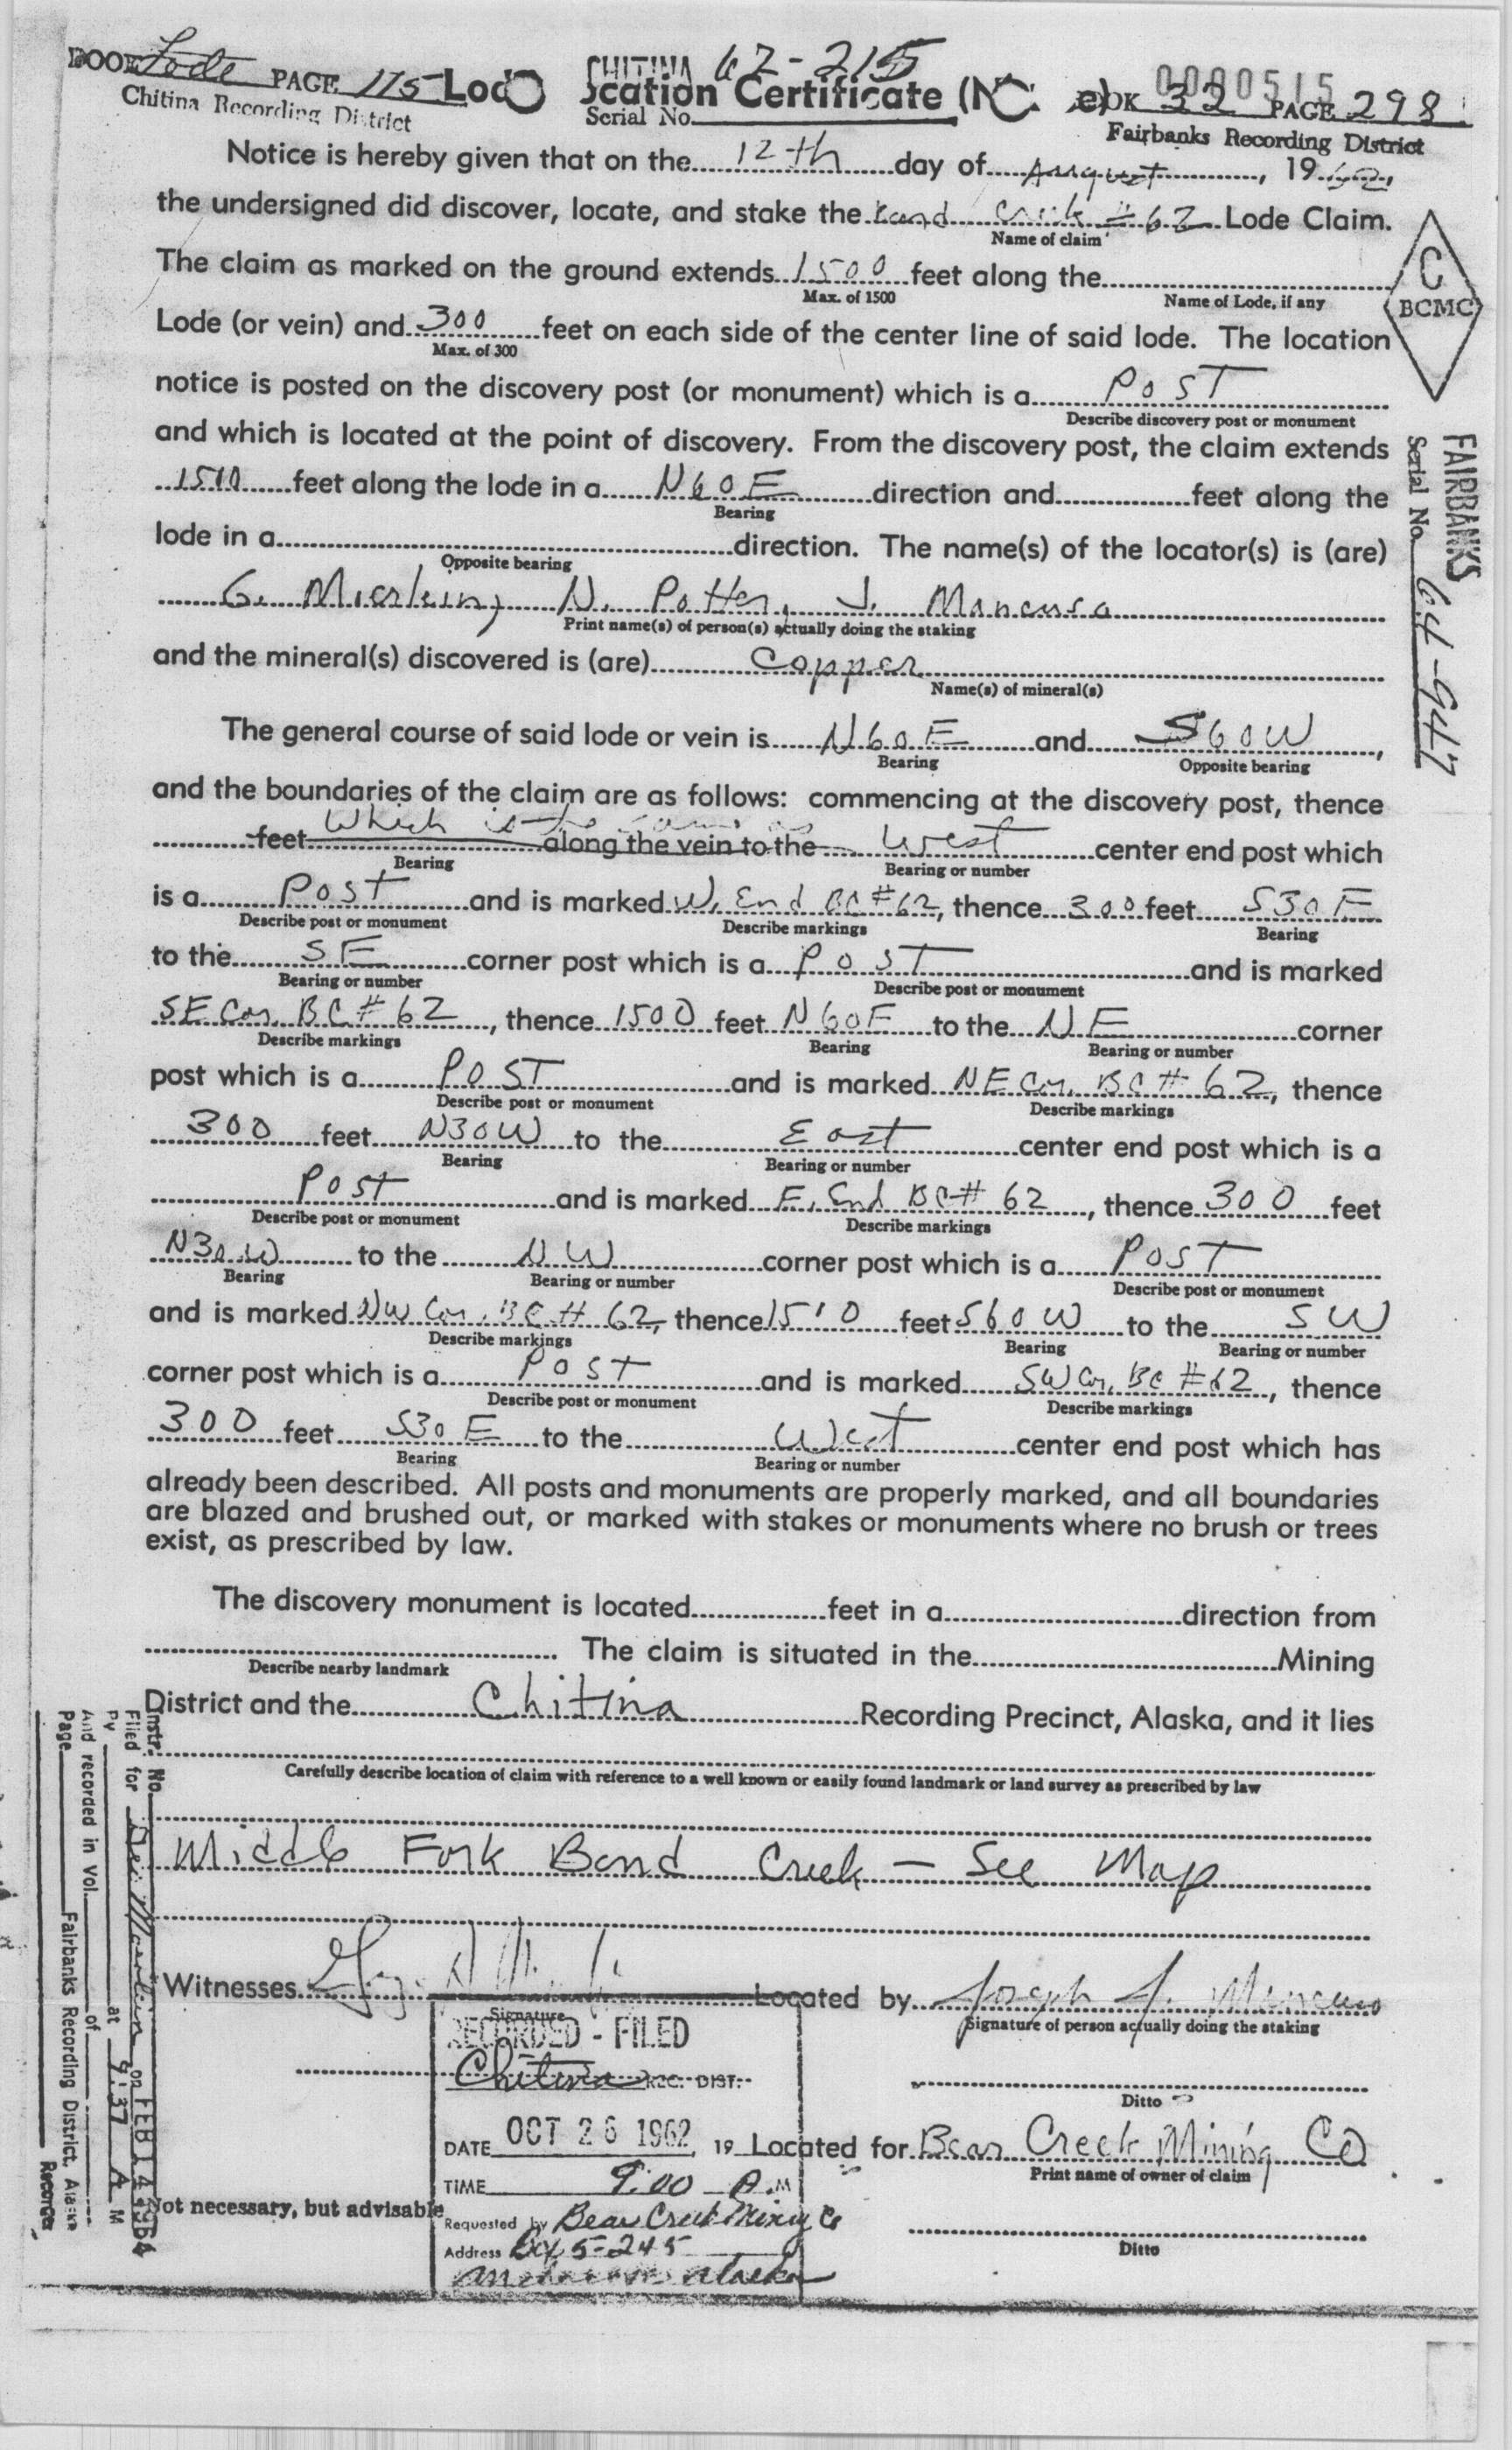 BOOK Lode PAGE 115
Chitina Recording District
CHITINA 62-215
Serial No.
Location Certificate (N e)
0000515
BOOK 32 PAGE 298
Fairbanks Recording District
Notice is hereby given that on the 12th day of August, 1962,
the undersigned did discover, locate, and stake the Creek #62 Lode Claim.
Name of claim
The claim as marked on the ground extends 1500 feet along the
Max. of 1500 Name of Lode, if any
Lode (or vein) and 300 feet on each side of the center line of said lode. The location
Max. of 300
C
BCMC
notice is posted on the discovery post (or monument) which is a POST
Describe discovery post or monument
and which is located at the point of discovery. From the discovery post, the claim extends
1500 feet along the lode in a N60E direction and feet along the
Bearing
FAIRBANKS
Serial No. 64-947
lode in a direction. The name(s) of the locator(s) is (are)
Opposite bearing
G. N. Potter, J. Mancuso
Print name(s) of person(s) actually doing the staking
and the mineral(s) discovered is (are) Copper
Name(s) of mineral(s)
The general course of said lode or vein is N60E and S60W,
Bearing Opposite bearing
and the boundaries of the claim are as follows: commencing at the discovery post, thence
feet which is the same as along the vein to the West center end post which
Bearing Bearing or number
is a Post and is marked W. End BC #62, thence 300 feet S30E
Describe post or monument Describe markings Bearing
to the SE corner post which is a POST and is marked
Bearing or number Describe post or monument
SE Cor. BC #62, thence 1500 feet N60E to the NE corner
Describe markings Bearing Bearing or number
post which is a POST and is marked NE Cor. BC #62, thence
Describe post or monument Describe markings
300 feet N30W to the East center end post which is a
Bearing Bearing or number
Post and is marked E. End BC #62, thence 300 feet
Describe post or monument Describe markings
N30W to the NW corner post which is a POST
Bearing Bearing or number Describe post or monument
and is marked NW Cor. BC #62, thence 1500 feet S60W to the SW
Describe markings Bearing Bearing or number
corner post which is a POST and is marked SW Cor. BC #62, thence
Describe post or monument Describe markings
300 feet S30E to the West center end post which has
Bearing Bearing or number
already been described. All posts and monuments are properly marked, and all boundaries
are blazed and brushed out, or marked with stakes or monuments where no brush or trees
exist, as prescribed by law.
The discovery monument is located feet in a direction from
The claim is situated in the Mining
Describe nearby landmark
District and the Chitina Recording Precinct, Alaska, and it lies
Carefully describe location of claim with reference to a well known or easily found landmark or land survey as prescribed by law
Middle Fork Bond Creek - See Map
Witnesses Located by Joseph J. Mancuso
Signature Signature of person actually doing the staking
RECORDED - FILED
Chitina REC. DIST.
Ditto
DATE OCT 26 1962 19
Located for Bear Creek Mining Co
Print name of owner of claim
TIME 9:00 A.M
Not necessary, but advisable
Requested by Bear Creek Mining Co
Ditto
Address Bx 5-245
Anchorage Alaska
Instr. No.
Filed for on FEB 14 1964
By at 9:37 A M
And recorded in Vol. of
Page Fairbanks Recording District, Alaska
Recorder